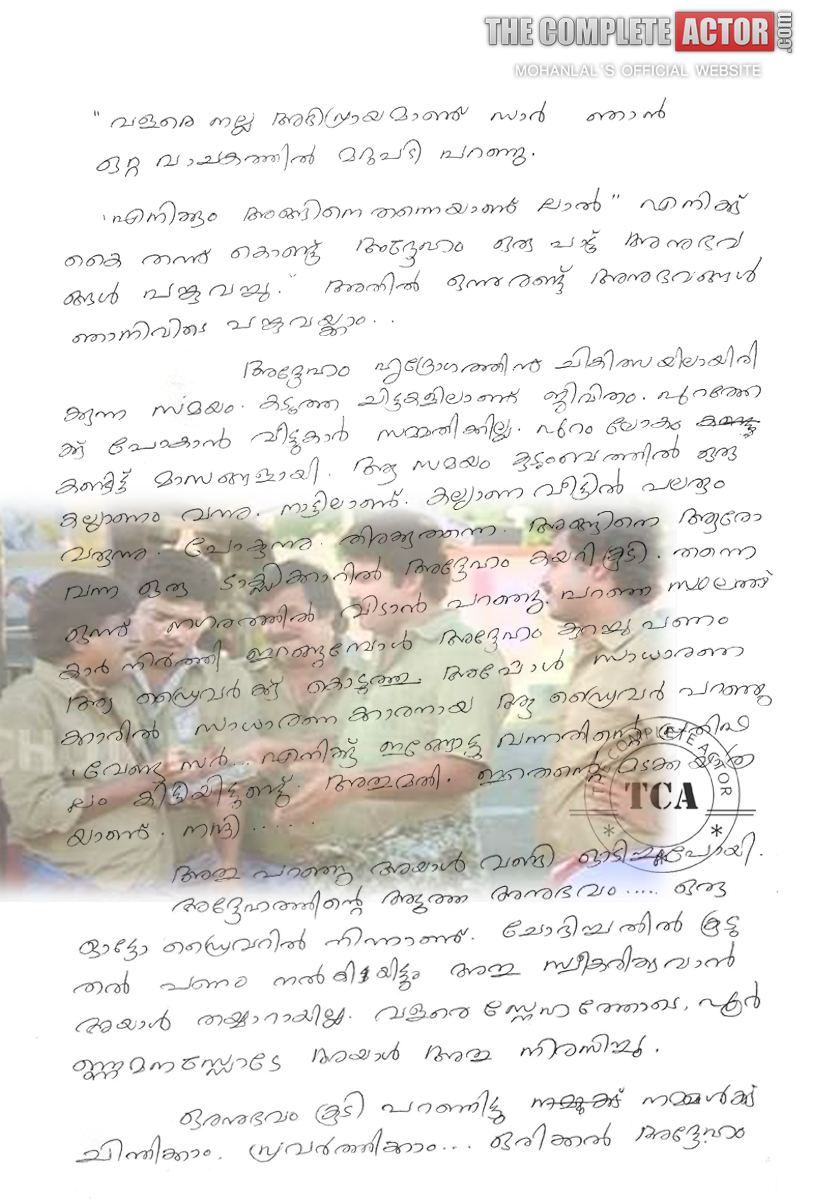 THE COMPLETE ACTOR.com
MOHANLAL'S OFFICIAL WEBSITE
" വളരെ നല്ല അഭിപ്രായമാണ് സാർ ഞാൻ
ഒറ്റ വാചകത്തിൽ മറുപടി പറഞ്ഞു.
'എനിക്കും അങ്ങിനെതന്നെയാണ് ലാൽ" എനിക്ക്
കൈ തന്ന് കൊണ്ട് അദ്ദേഹം ഒരു പാട് അനുഭവ
ങ്ങൾ പങ്കുവച്ചു." അതിൽ ഒന്നുരണ്ട് അനുഭവങ്ങൾ
ഞാനിവിടെ പങ്കുവയ്ക്കാം..
അദ്ദേഹം ഹൃദ്രോഗത്തിന് ചികിത്സയിലായിരി
ക്കുന്ന സമയം. കടുത്ത ചിട്ടകളിലാണ് ജീവിതം. പുറത്തേ
ക്ക് പോകാൻ വീട്ടുകാർ സമ്മതിക്കില്ല. പുറം ലോകം
കണ്ടിട്ട് മാസങ്ങളായി. ആ സമയം കുടുംബത്തിൽ ഒരു
കല്യാണം വന്നു. നാട്ടിലാണ്. കല്യാണ വീട്ടിൽ പലരും
വരുന്നു. പോകുന്നു. തിരക്കുതന്നെ. അങ്ങിനെ ആരോ
വന്ന ഒരു ടാക്സിക്കാറിൽ അദ്ദേഹം കയറികൂടി. തന്നെ
ഒന്ന് നഗരത്തിൽ വിടാൻ പറഞ്ഞു. പറഞ്ഞ സ്ഥലത്ത്
കാർ നിർത്തി ഇറങ്ങുമ്പോൾ അദ്ദേഹം കുറച്ചു പണം
ആ ഡ്രൈവർക്ക് കൊടുത്തു. അപ്പോൾ സാധാരണ
ക്കാരിൽ സാധാരണക്കാരനായ ആ ഡ്രൈവർ പറഞ്ഞു
'വേണ്ട സർ... എനിക്ക് ഇങ്ങോട്ടു വന്നതിന്റെ പ്രതിഫ
ലം കിട്ടിയിട്ടുണ്ട്. അതുമതി. ഇതെന്റെ മടക്ക യാത്ര
യാണ്. നന്ദി .....
അതു പറഞ്ഞു അയാൾ വണ്ടി ഓടിച്ചുപോയി.
അദ്ദേഹത്തിന്റെ അടുത്ത അനുഭവം ..... ഒരു
ഓട്ടോ ഡ്രൈവറിൽ നിന്നാണ്. ചോദിച്ചതിൽ കൂടു
തൽ പണം നൽകിയിട്ടും അതു സ്വീകരിക്കുവാൻ
അയാൾ തയ്യാറായില്ല. വളരെ സ്നേഹത്തോടെ, പൂർ
ണ്ണമനസ്സോടേ അയാൾ അതു നിരസിച്ചു.
ഒരനുഭവം കൂടി പറഞ്ഞിട്ടു നമ്മുക്ക് നമ്മൾക്ക്
ചിന്തിക്കാം. പ്രവർത്തിക്കാം... ഒരിക്കൽ അദ്ദേഹം
THE COMPLETE ACTOR
TCA